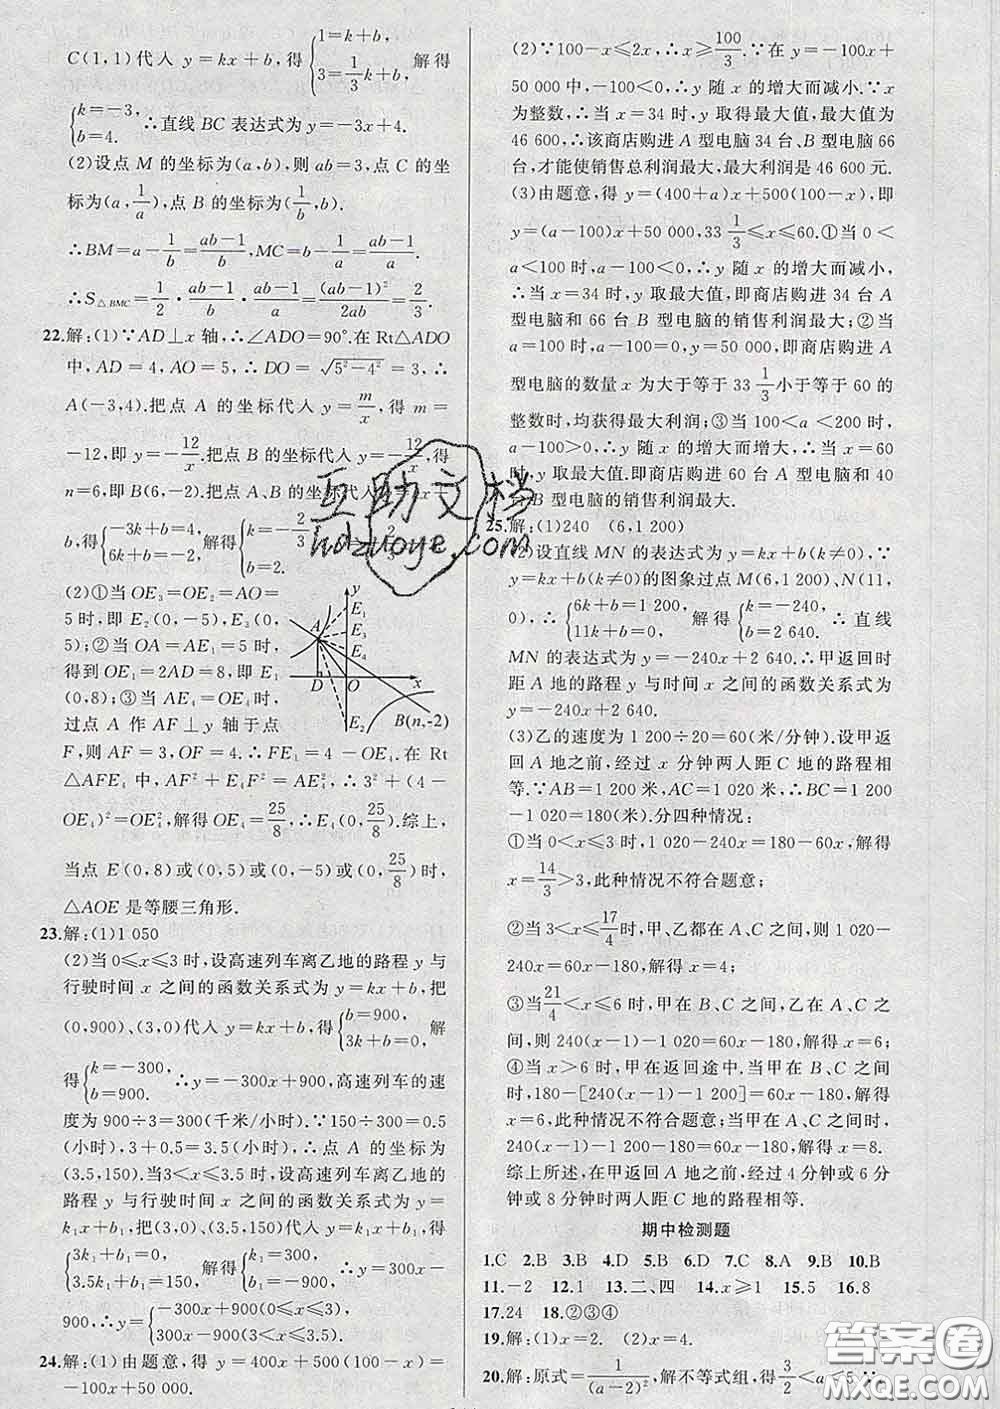 C(1,1)代入 y=kx+b,得{1=k+b, 3=1/3k+b, 解得
{k=-3, b=4. ∴直线 BC 表达式为 y=-3x+4.
(2)设点 M 的坐标为(a,b),则 ab=3,点 C 的坐
标为(a,1/a),点 B 的坐标为(1/b,b).
∴BM=a-1/b=(ab-1)/b,MC=b-1/a=(ab-1)/a.
∴S△BMC=1/2·(ab-1)/b·(ab-1)/a=(ab-1)²/2ab=2/3.
22.解:(1)∵AD⊥x 轴,∴∠ADO=90°.在 Rt△ADO
中,AD=4,AO=5,∴DO=√(5²-4²)=3,∴
A(-3,4).把点 A 的坐标代入 y=m/x,得 m=
-12,即 y=-12/x.把点 B 的坐标代入 y=-12/x,得
n=6,即 B(6,-2).把点 A、B 的坐标代入 y=kx+
b,得{-3k+b=4, 6k+b=-2. 解得{k=-2/3, b=2.
(2)①当 OE₃=OE₂=AO=
5 时,即 E₂(0,-5),E₃(0,
5);②当 OA=AE₁=5 时,
得到 OE₁=2AD=8,即 E₁
(0,8);③当 AE₄=OE₄ 时,
过点 A 作 AF⊥y 轴于点
F,则 AF=3,OF=4.∴FE₄=4-OE₄.在 Rt
△AFE₄ 中,AF²+E₄F²=AE₄²,∴3²+(4-
OE₄)²=OE₄²,解得 OE₄=25/8,∴E₄(0,25/8).综上,
当点 E(0,8)或(0,5)或(0,-5)或(0,25/8)时,
△AOE 是等腰三角形.
y
E₁
A
E₃
E₄
D
O
x
E₂
B(n,-2)
23.解:(1)1 050
(2)当 0≤x≤3 时,设高速列车离乙地的路程 y 与
行驶时间 x 之间的函数关系式为 y=kx+b,把
(0,900)、(3,0)代入 y=kx+b,得{b=900, 3k+b=0, 解
得{k=-300, b=900. ∴y=-300x+900,高速列车的速
度为 900÷3=300(千米/小时).∵150÷300=0.5
(小时),3+0.5=3.5(小时),∴点 A 的坐标为
(3.5,150).当 3<x≤3.5 时,设高速列车离乙地的
路程 y 与行驶时间 x 之间的函数关系式为 y=
k₁x+b₁,把(3,0)、(3.5,150)代入 y=k₁x+b₁,得
{3k₁+b₁=0, 3.5k₁+b₁=150, 解得{k₁=300, b₁=-900. ∴y=300x-
900,∴y={-300x+900(0≤x≤3), 300x-900(3<x≤3.5).
24.解:(1)由题意,得 y=400x+500(100-x)=
-100x+50 000.
(2)∵100-x≤2x,∴x≥100/3.∵在 y=-100x+
50 000 中-100<0,∴y 随 x 的增大而减小.∵x
为整数,∴当 x=34 时,y 取得最大值,最大值为
46 600,∴该商店购进 A 型电脑 34 台、B 型电脑 66
台,才能使销售总利润最大,最大利润是 46 600 元.
(3)由题意,得 y=(400+a)x+500(100-x),即
y=(a-100)x+50 000,33 1/3≤x≤60.①当 0<
a<100 时,a-100<0,∴y 随 x 的增大而减小,
∴当 x=34 时,y 取最大值,即商店购进 34 台 A
型电脑和 66 台 B 型电脑的销售利润最大;②当
a=100 时,a-100=0,y=50 000,即商店购进 A
型电脑的数量 x 为大于等于 33 1/3小于等于 60 的
整数时,均获得最大利润;③当 100<a<200 时,
a-100>0,∴y 随 x 的增大而增大,∴当 x=60
时,y 取最大值.即商店购进 60 台 A 型电脑和 40
台 B 型电脑的销售利润最大.
25.解:(1)240 (6,1 200)
(2)设直线 MN 的表达式为 y=kx+b(k≠0),∵
y=kx+b(k≠0)的图象过点 M(6,1 200)、N(11,
0),∴{6k+b=1 200, 11k+b=0, 解得{k=-240, b=2 640. ∴直线
MN 的表达式为 y=-240x+2 640.∴甲返回时
距 A 地的路程 y 与时间 x 之间的函数关系式为
y=-240x+2 640.
(3)乙的速度为 1 200÷20=60(米/分钟).设甲返
回 A 地之前,经过 x 分钟两人距 C 地的路程相
等.∵AB=1 200 米,AC=1 020 米,∴BC=1 200
-1 020=180(米).分四种情况:
①当 0<x≤3 时,1 020-240x=180-60x,解得
x=14/3>3,此种情况不符合题意;
②当 3<x≤17/4时,甲、乙都在 A、C 之间,则 1 020-
240x=60x-180,解得 x=4;
③当21/4<x≤6 时,甲在 B、C 之间,乙在 A、C 之
间,则 240(x-1)-1 020=60x-180,解得 x=6;
④当 x>6 时,甲在返回途中.当甲在 B、C 之间时,
180-[240(x-1)-1 200]=60x-180,解得
x=6,此种情况不符合题意;当甲在 A、C 之间时,
240(x-1)-1 200-180=60x-180,解得 x=8.
综上所述,在甲返回 A 地之前,经过 4 分钟或 6 分
钟或 8 分钟时两人距 C 地的路程相等.
期中检测题
1.C 2.B 3.B 4.D 5.B 6.D 7.C 8.A 9.B 10.B
11.-2 12.1 13.二、四 14.x≥1 15.5 16.8
17.24 18.②③④
19.解:(1)x=2. (2)x=4.
20.解:原式=1/(a-2)²,解不等式组,得3/2<a<5.∵
互助文档
hdzuoye.com
答案圈
MXQE.COM